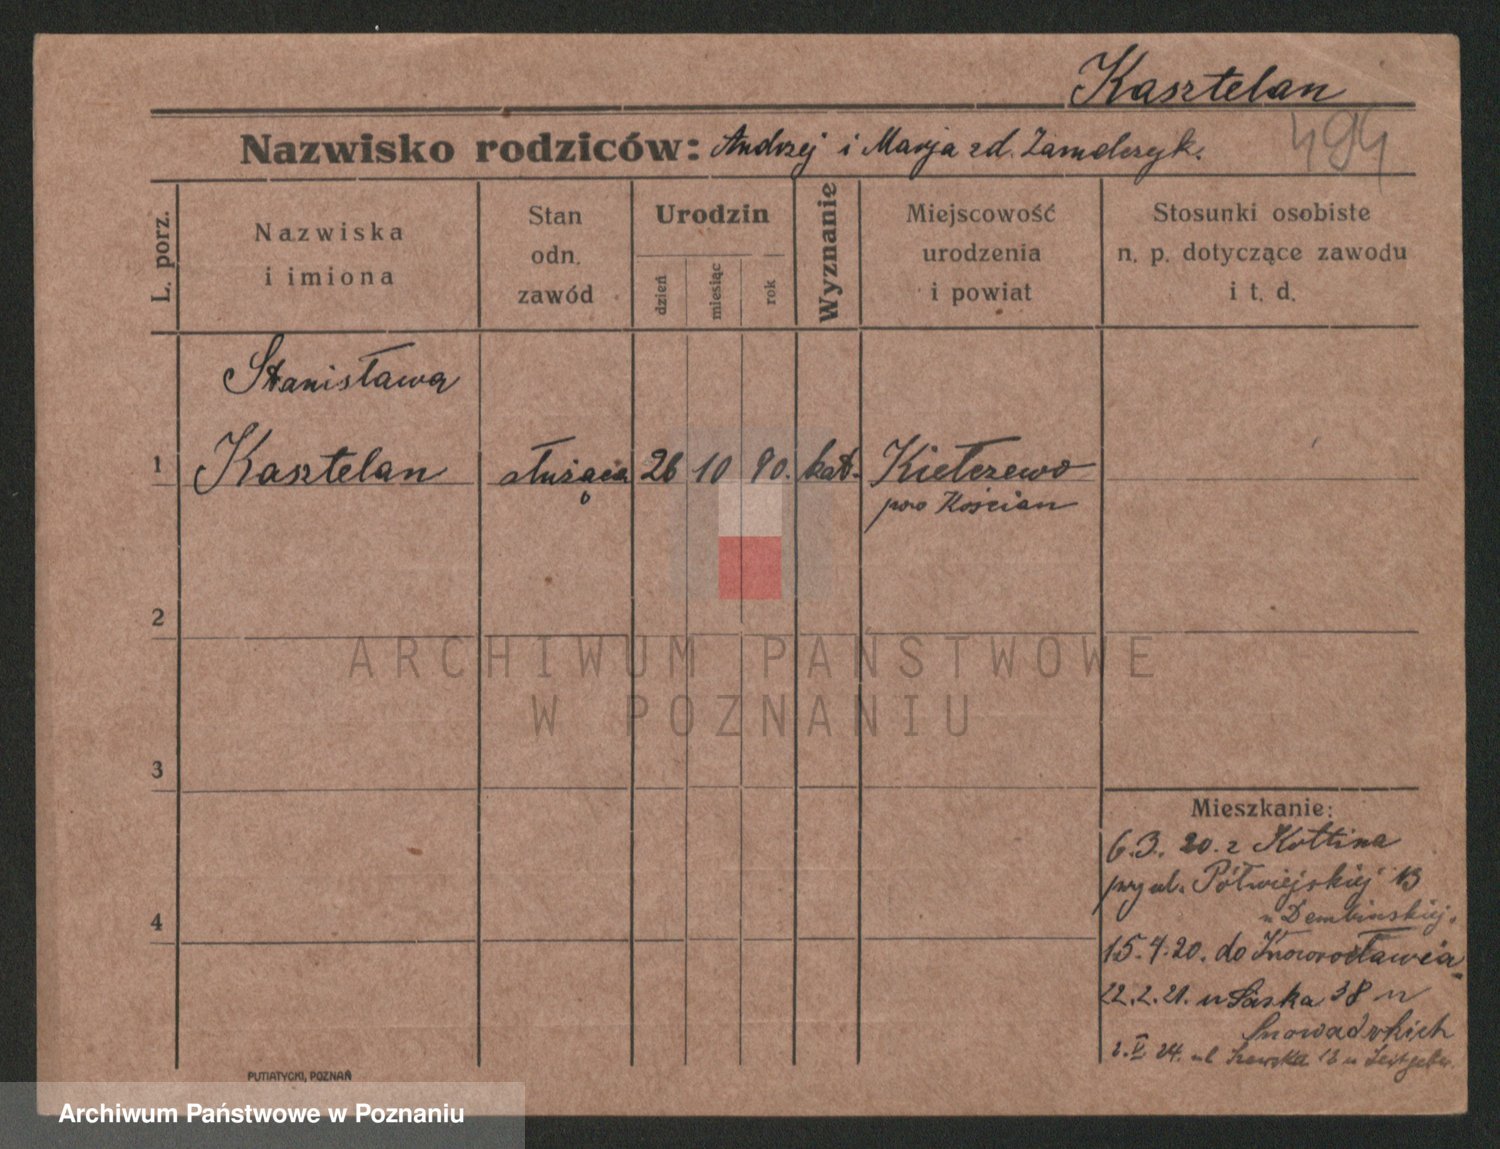 Kasztelan
Nazwisko rodziców: Andrzej i Marja zd.
494
L. porz.
Nazwiska
i imiona
Stan
odn.
zawód
Urodzin
dzień
miesiąc
rok
Wyznanie
Miejscowość
urodzenia
i powiat
Stosunki osobiste
n. p. dotyczące zawodu
i t. d.
Stanisława
1 Kasztelan służąca 26 10 90. kat. Kiełczewo
pow Kościan
2
ARCHIWUM PAŃSTWOWE
W POZNANIU
3
Mieszkanie:
6.3. 20. z
przy ul. Półwiejskiej 13
u Dembińskiej.
4
15.4.20. do Inowrocławia
22.2.21. 38 u
2.V.24. ul. Szewska u
PUTIATYCKI, POZNAŃ
Archiwum Państwowe w Poznaniu